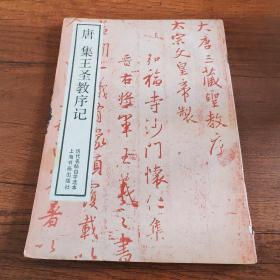 唐 集王圣教序记
历代名帖自学选本
上海书画出版社
大唐三藏聖教序
太宗文皇帝製
弘福寺沙門懷仁集
晉右將軍王羲之書